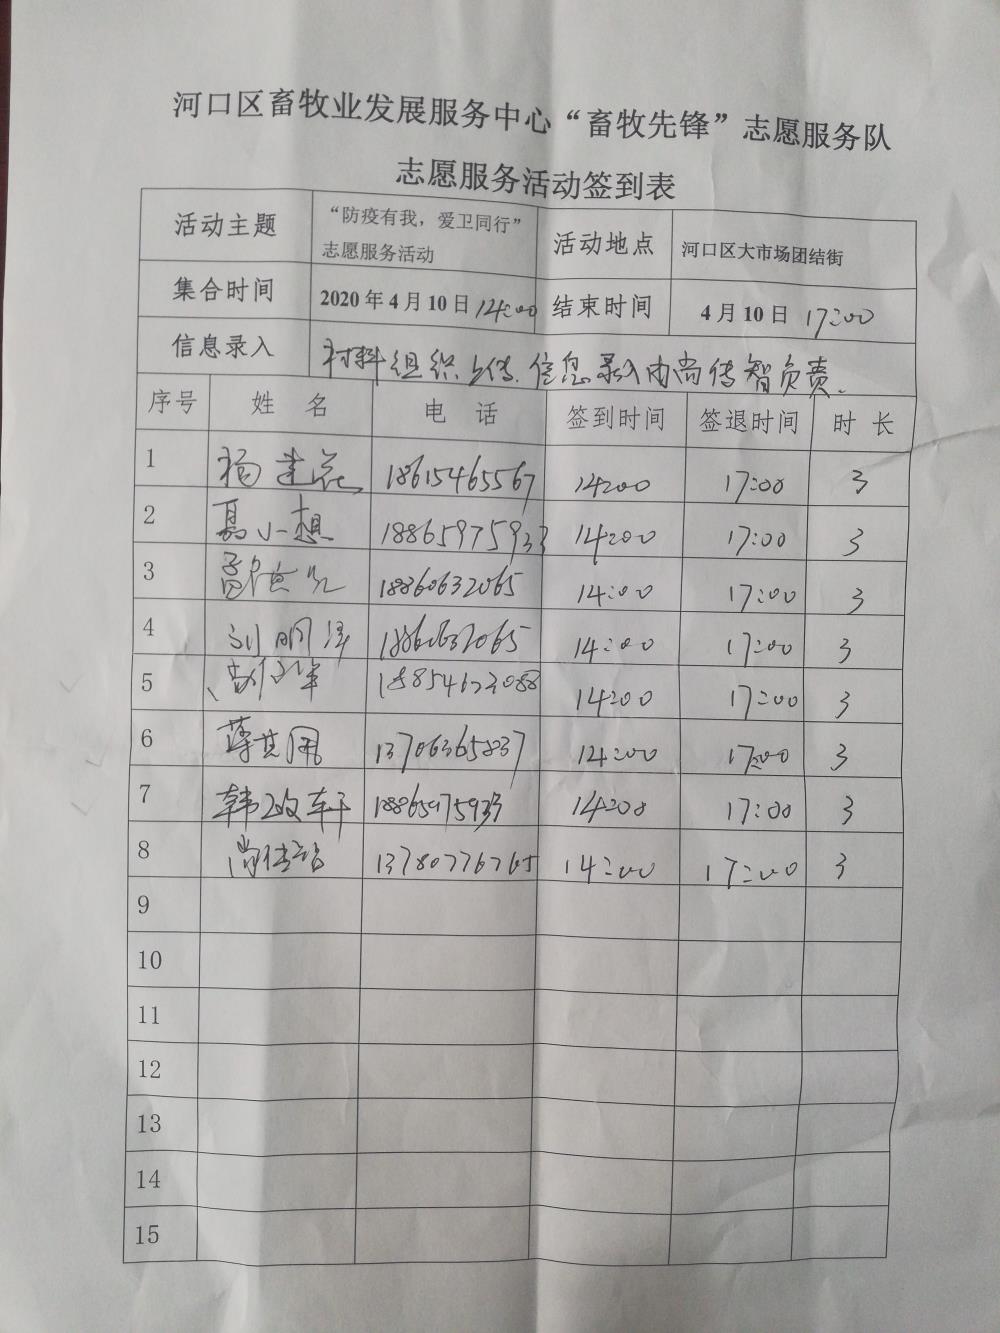 河口区畜牧业发展服务中心“畜牧先锋”志愿服务队
志愿服务活动签到表
活动主题 “防疫有我，爱卫同行” 志愿服务活动 活动地点 河口区大市场团结街
集合时间 2020年4月10日 14:00 结束时间 4月10日 17:00
信息录入 材料组织上传、信息录入由尚传智负责.
序号 姓 名 电 话 签到时间 签退时间 时 长
1 18615465567 14:00 17:00 3
2 小想 18865975933 14:00 17:00 3
3 18860632065 14:00 17:00 3
4 刘明泽 14:00 17:00 3
5 14:00 17:00 3
6 薄其佩 13706365837 14:00 17:00 3
7 韩政轩 18865975933 14:00 17:00 3
8 尚传智 13780776765 14:00 17:00 3
9
10
11
12
13
14
15